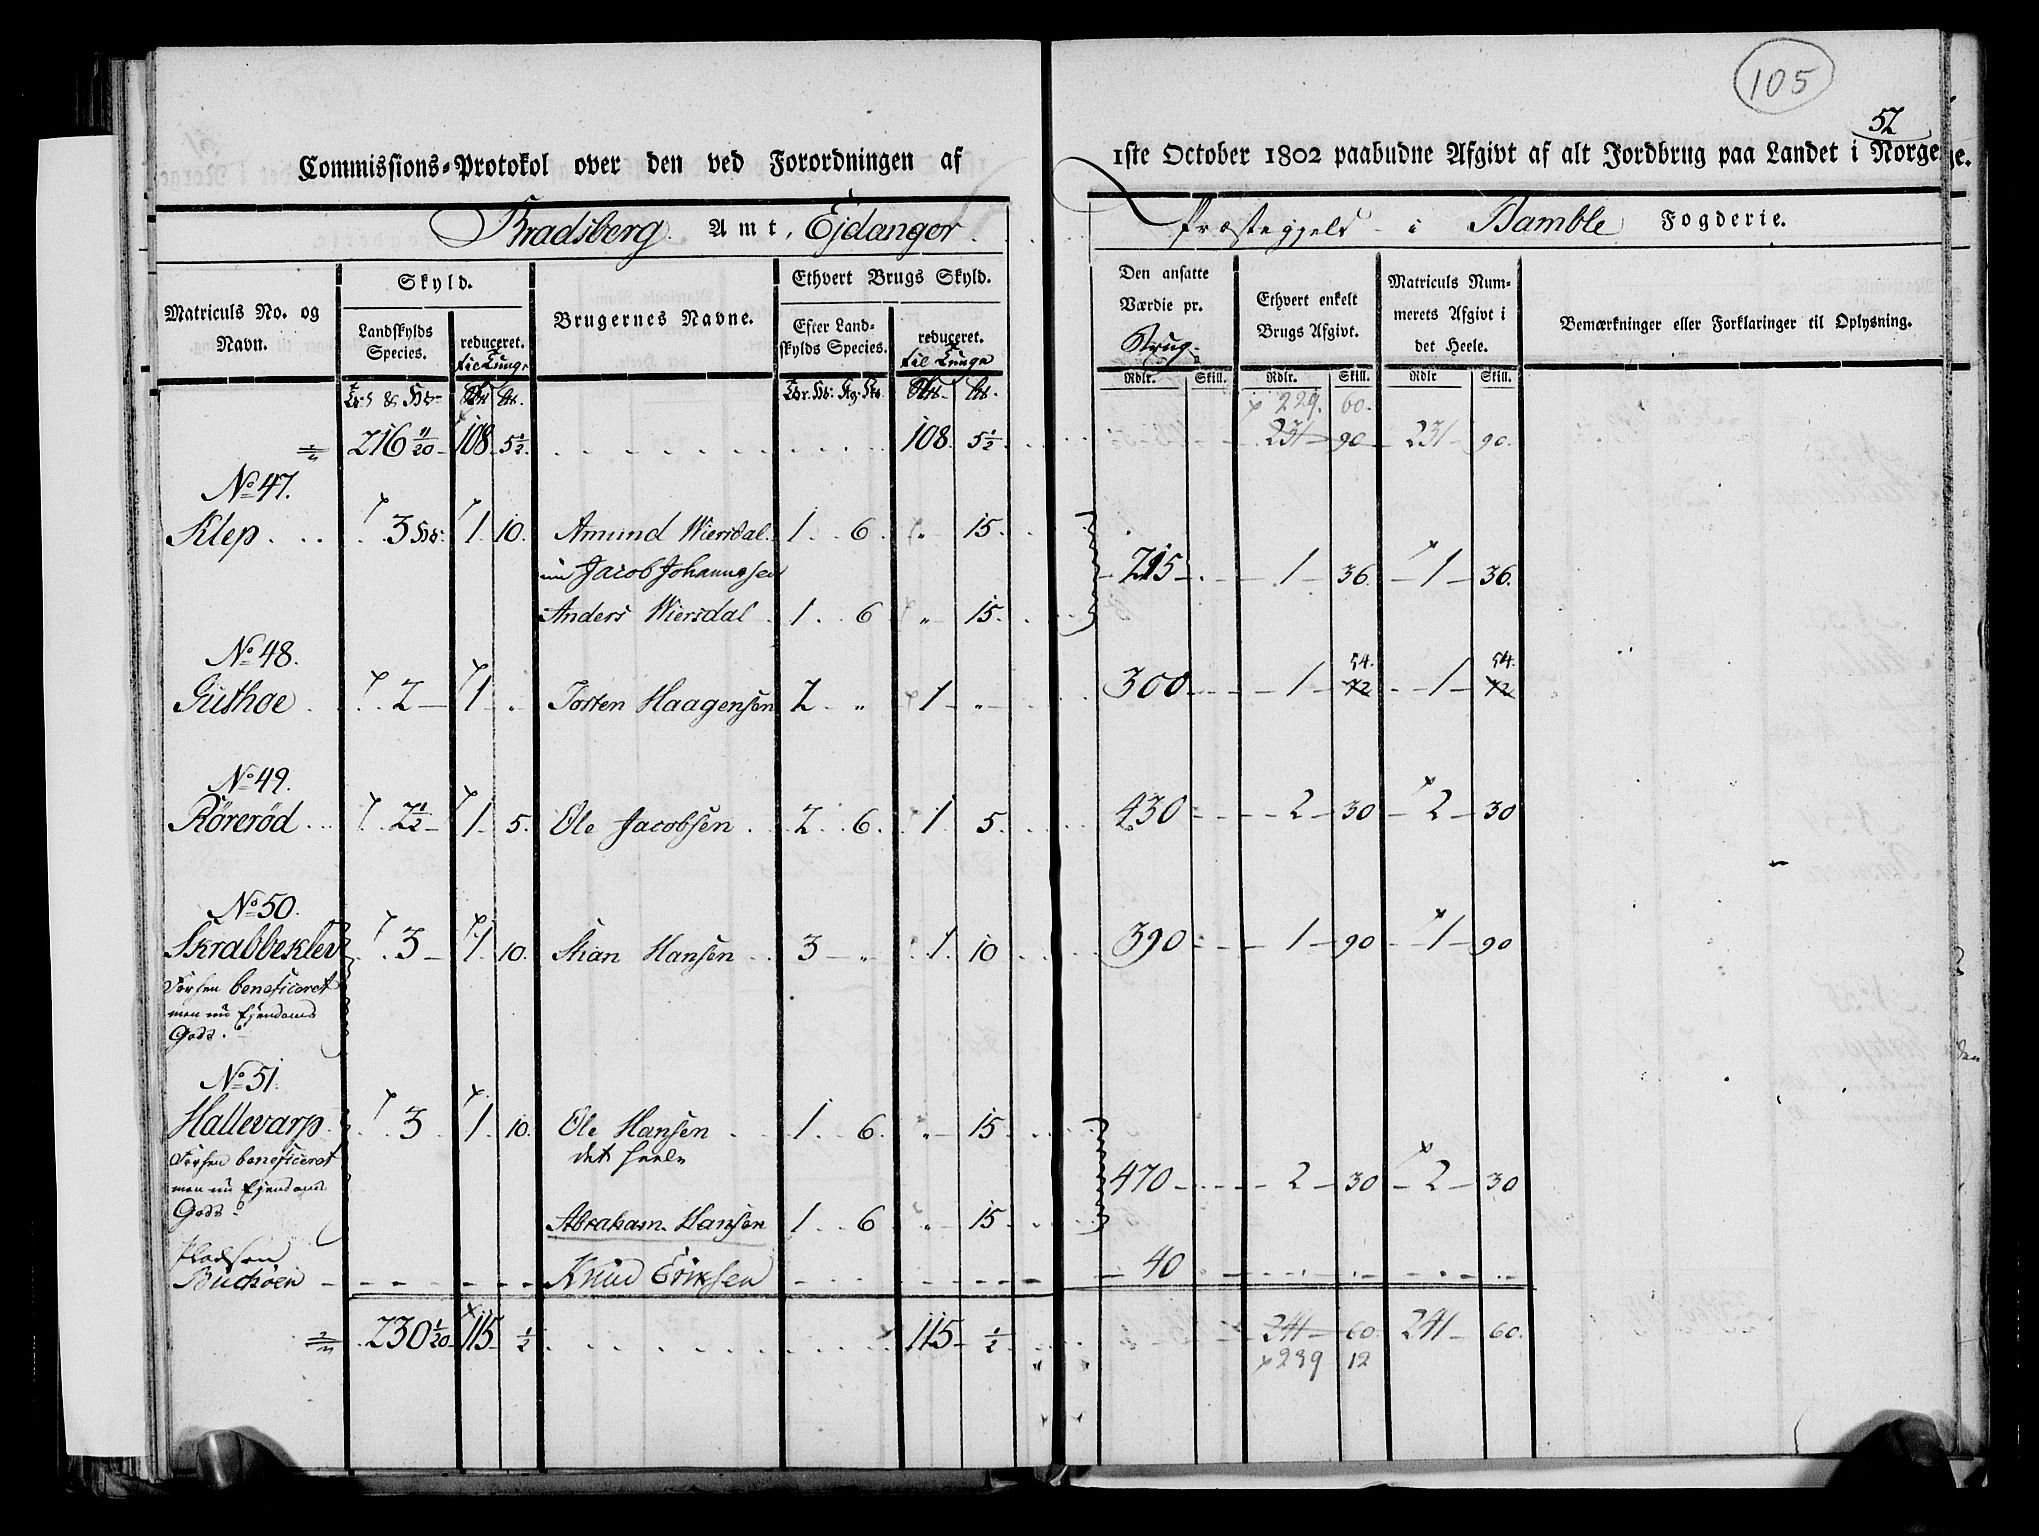 105
52
Commissions-Protokol over den ved Forordningen af 1ste October 1802 paabudne Afgivt af alt Jordbrug paa Landet i Norge.
Bradsberg Amt, Ejdanger Præstegjeld i Bamble Fogderie.
Matriculs No. og Navn.
Skyld.
Landskylds Species.
reduceret. til Tunge
Brugernes Navne.
Ethvert Brugs Skyld.
Efter Landskylds Species.
reduceret. til Tunge
Den ansatte Værdie pr. Brug.
Ethvert enkelt Brugs Afgivt.
Matriculs Nummerets Afgivt i det Heele.
Bemærkninger eller Forklaringer til Oplysning.
Rdlr. Skill. Rdlr. Skill. Rdlr Skill.
229. 60.
216 11/20 108 5 1/2 108. 5 1/2 231 90 231 90.
No 47.
Klep 3 1 10. Amund Wiersdal 1 6 " 15.
nu Jacob Johannesen 215 1 36. 1 36.
Anders Wiersdal 1 6 " 15.
No 48. 54. 54.
Gusthoe 2 1 " Torsten Haagensen 2 " 1 " 300 1 72 1 72
No 49.
Rörerød 2 1/2 1 5. Ole Jacobsen 2 6. 1 5. 430 2 30 2 30
No 50.
Skrabbeklev 3 1 10. Stian Hansen 3 " 1 10 390 1 90 1 90
Førhen beneficeret
men nu Ejendoms
Gods.
No 51.
Hallevarp 3 1 10. Ole Hansen 1 6. " 15
det heele
Førhen beneficeret
men nu Ejendoms 470 2 30 2 30
Gods.
Abraham Hansen 1 6 " 15
Pladsen
Buchøen Knud Eriksen 40
230 1/20 115 1/2 115 1/2 241 60. 241 60.
239 12